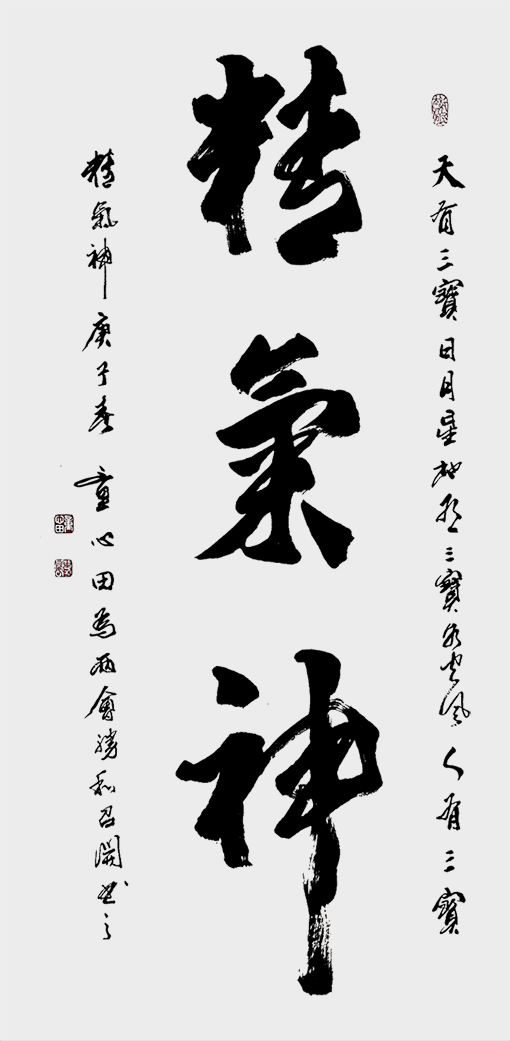 天有三寶日月星地有三寶水火風人有三寶
精氣神
精氣神庚子春童心田為兩會勝利召開書之